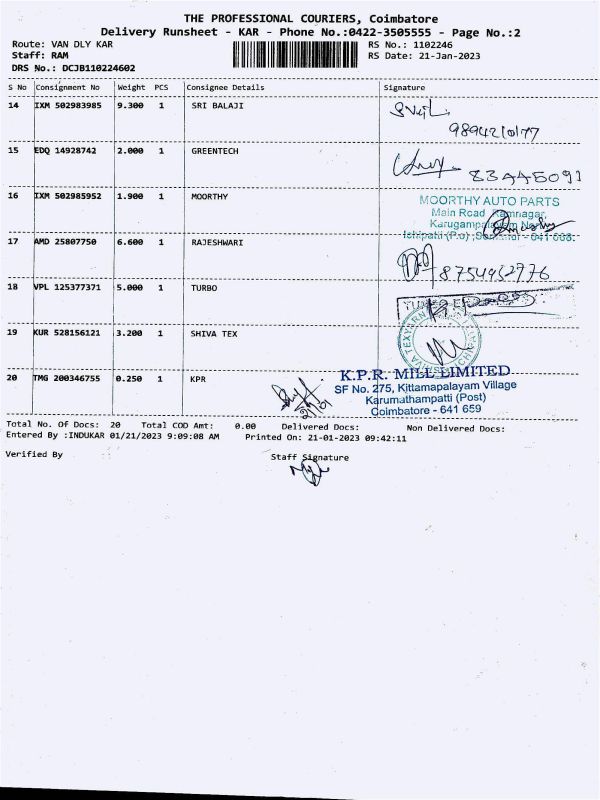 THE PROFESSIONAL COURIERS, Coimbatore
Delivery Runsheet - KAR - Phone No.:0422-3505555 - Page No.:2
Route: VAN DLY KAR RS No.: 1102246
Staff: RAM RS Date: 21-Jan-2023
DRS No.: DCJB110224602
S No Consignment No Weight PCS Consignee Details Signature
14 IXM 502983985 9.300 1 SRI BALAJI
9894210177
15 EDQ 14928742 2.000 1 GREENTECH
16 IXM 502985952 1.900 1 MOORTHY
MOORTHY AUTO PARTS
Main Road Ramnagar,
17 AMD 25807750 6.600 1 RAJESHWARI
8754952776
18 VPL 125377371 5.000 1 TURBO
19 KUR 528156121 3.200 1 SHIVA TEX
20 TMG 200346755 0.250 1 KPR
K.P.R. MILL LIMITED
SF No. 275, Kittamapalayam Village
Karumathampatti (Post)
Coimbatore - 641 659
Total No. Of Docs: 20 Total COD Amt: 0.00 Delivered Docs: Non Delivered Docs:
Entered By :INDUKAR 01/21/2023 9:09:08 AM Printed On: 21-01-2023 09:42:11
Verified By Staff Signature